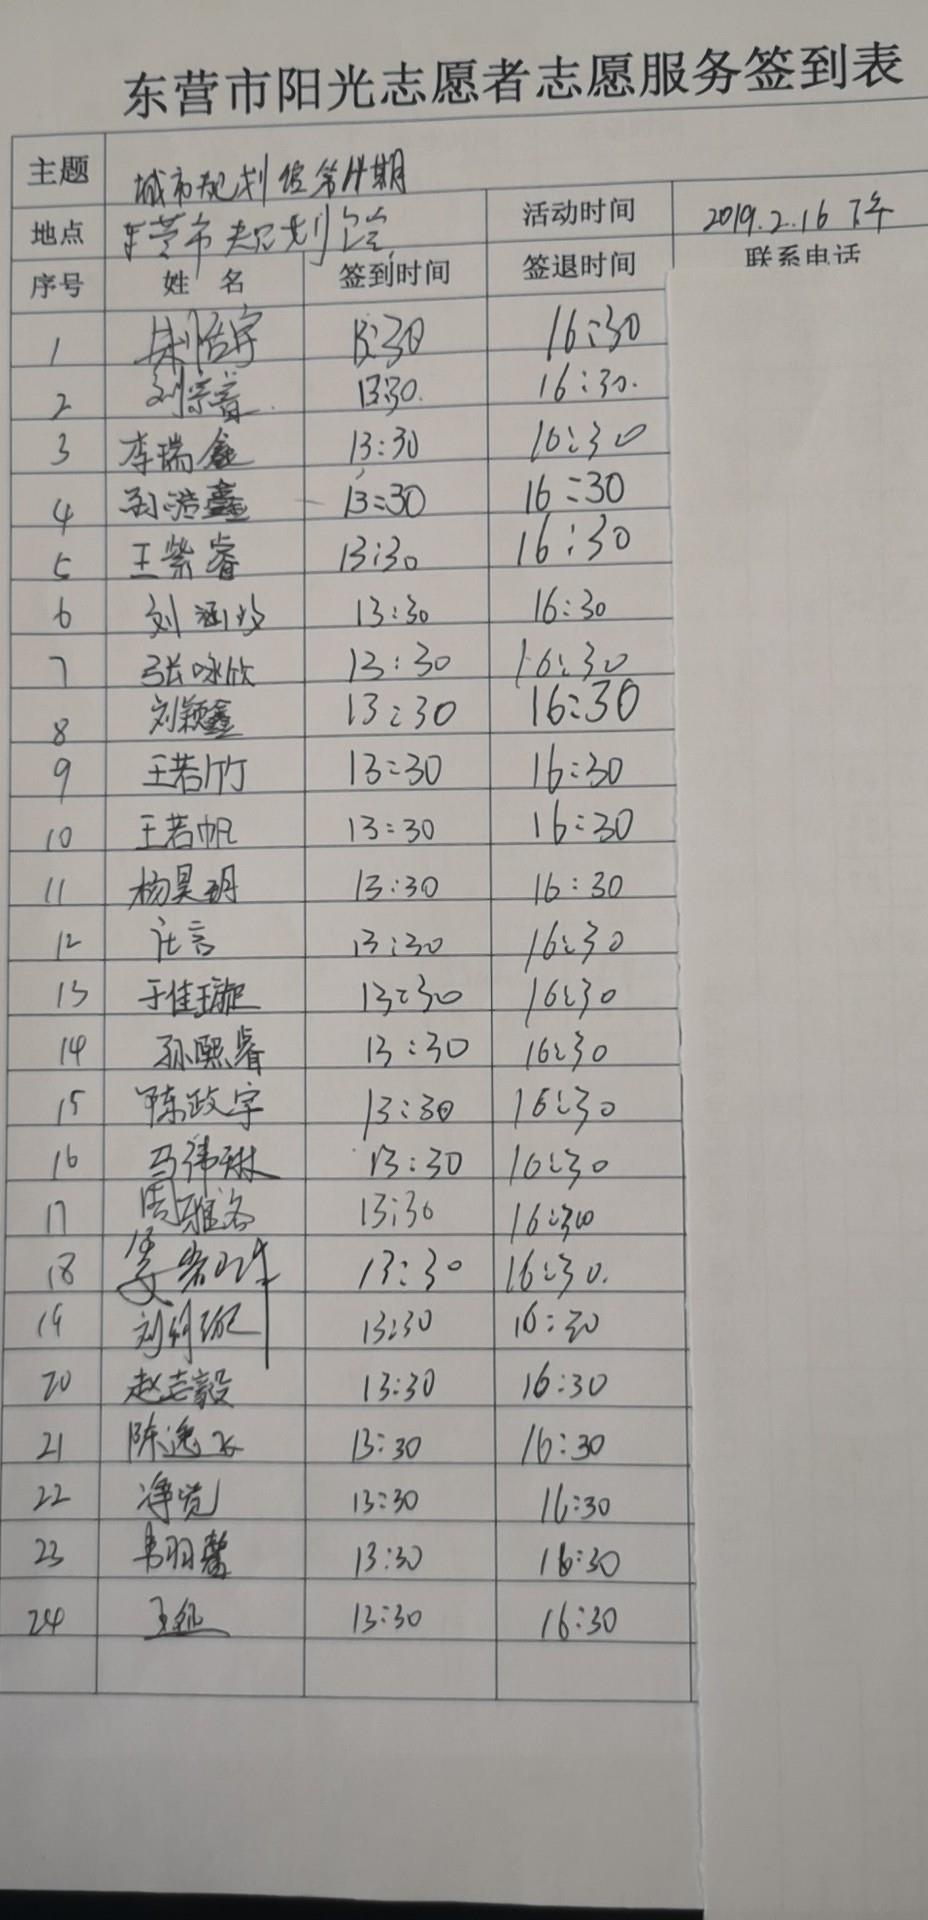 东营市阳光志愿者志愿服务签到表
主题 城市规划馆第期
地点 东营市规划馆 活动时间 2019.2.16下午
序号 姓名 签到时间 签退时间 联系电话
1 浩宇 13:30 16:30
2 刘崇睿 13:30. 16:30.
3 李瑞鑫 13:30 16:30
4 浩鑫 13:30 16:30
5 王紫睿 13:30 16:30
6 刘涵 13:30 16:30
7 张咏欣 13:30 16:30
8 刘颖鑫 13:30 16:30
9 王若竹 13:30 16:30
10 王若帆 13:30 16:30
11 杨昊玥 13:30 16:30
12 言 13:30 16:30
13 于佳璇 13:30 16:30
14 孙熙睿 13:30 16:30
15 陈政宇 13:30 16:30
16 马伟琳 13:30 16:30
17 周雅洛 13:30 16:30
18 姜 13:30 16:30.
19 刘 13:30 16:30
20 赵志毅 13:30 16:30
21 陈逸飞 13:30 16:30
22 13:30 16:30
23 韦羽馨 13:30 16:30
24 王 13:30 16:30